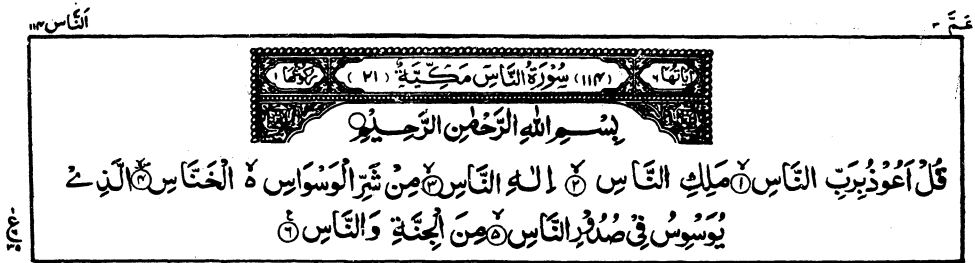 عَمَّ ٣٠
اَلنَّاس ١١٤
اٰيَاتُهَا ٦ (١١٤) سُوْرَةُ النَّاسِ مَكِّيَّةٌ (٢١) رُكُوْعُهَا ١
بِسْمِ اللّٰهِ الرَّحْمٰنِ الرَّحِيْمِ
قُلْ اَعُوْذُ بِرَبِّ النَّاسِ ۙ﴿١﴾ مَلِكِ النَّاسِ ۙ﴿٢﴾ اِلٰهِ النَّاسِ ۙ﴿٣﴾ مِنْ شَرِّ الْوَسْوَاسِ ەۙ الْخَنَّاسِ ۙ﴿٤﴾ الَّذِيْ
يُوَسْوِسُ فِيْ صُدُوْرِ النَّاسِ ۙ﴿٥﴾ مِنَ الْجِنَّةِ وَالنَّاسِ ﴿٦﴾